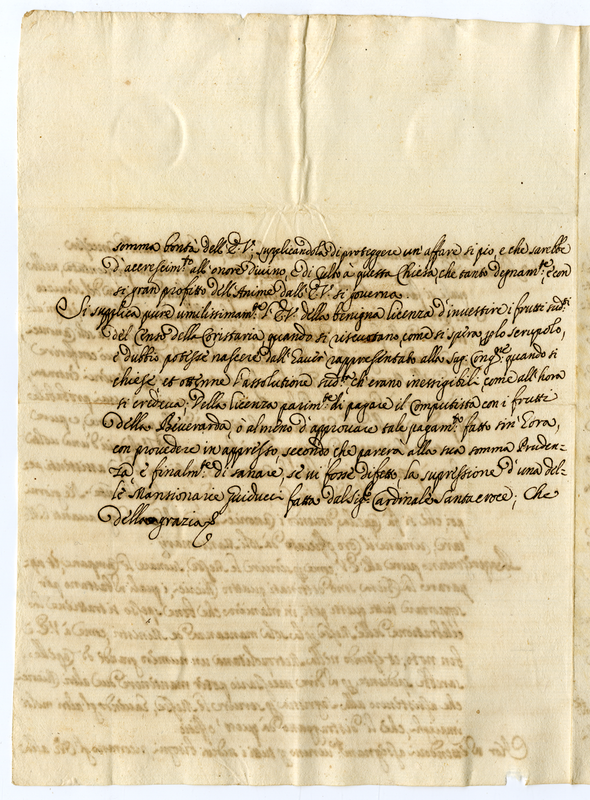 somma bontà dell'E. V., supplicandola di proteggere un'affare sì pio, e che sarebbe
d'accrescim.to all'onore Divino, e di Culto a questa Chiesa, che tanto degnam.te, e con
sì gran profitto dell'Anime dall'E. V. si governa.
Si supplica pure umilissimam.te l'E. V. della benigna licenza d'investire i frutti sud.ti
del Censo della Coristaria, quando si riscuotano, come si spera, p lo scrupolo,
e dubbio potesse nascere dall'haver rappresentato alla Sag. Cong.ne quando si
chiese, et ottenne l'assolutione sud.a ch'erano inesrigibili, come all'hora
si credeva; Della licenza parim.te di pagare il Computista con i frutti
della Beverarda, o almeno d'approvare tale pagam.to fatto sin'hora,
con provedere in appresso, secondo che parerà alla sua somma Pruden-
za, e finalm.te di sanare, se vi fosse difetto, la supressione d'una del-
le Mansionarie Guiducci fatta dal Sig.r Cardinale Santacroce; Che
della grazia